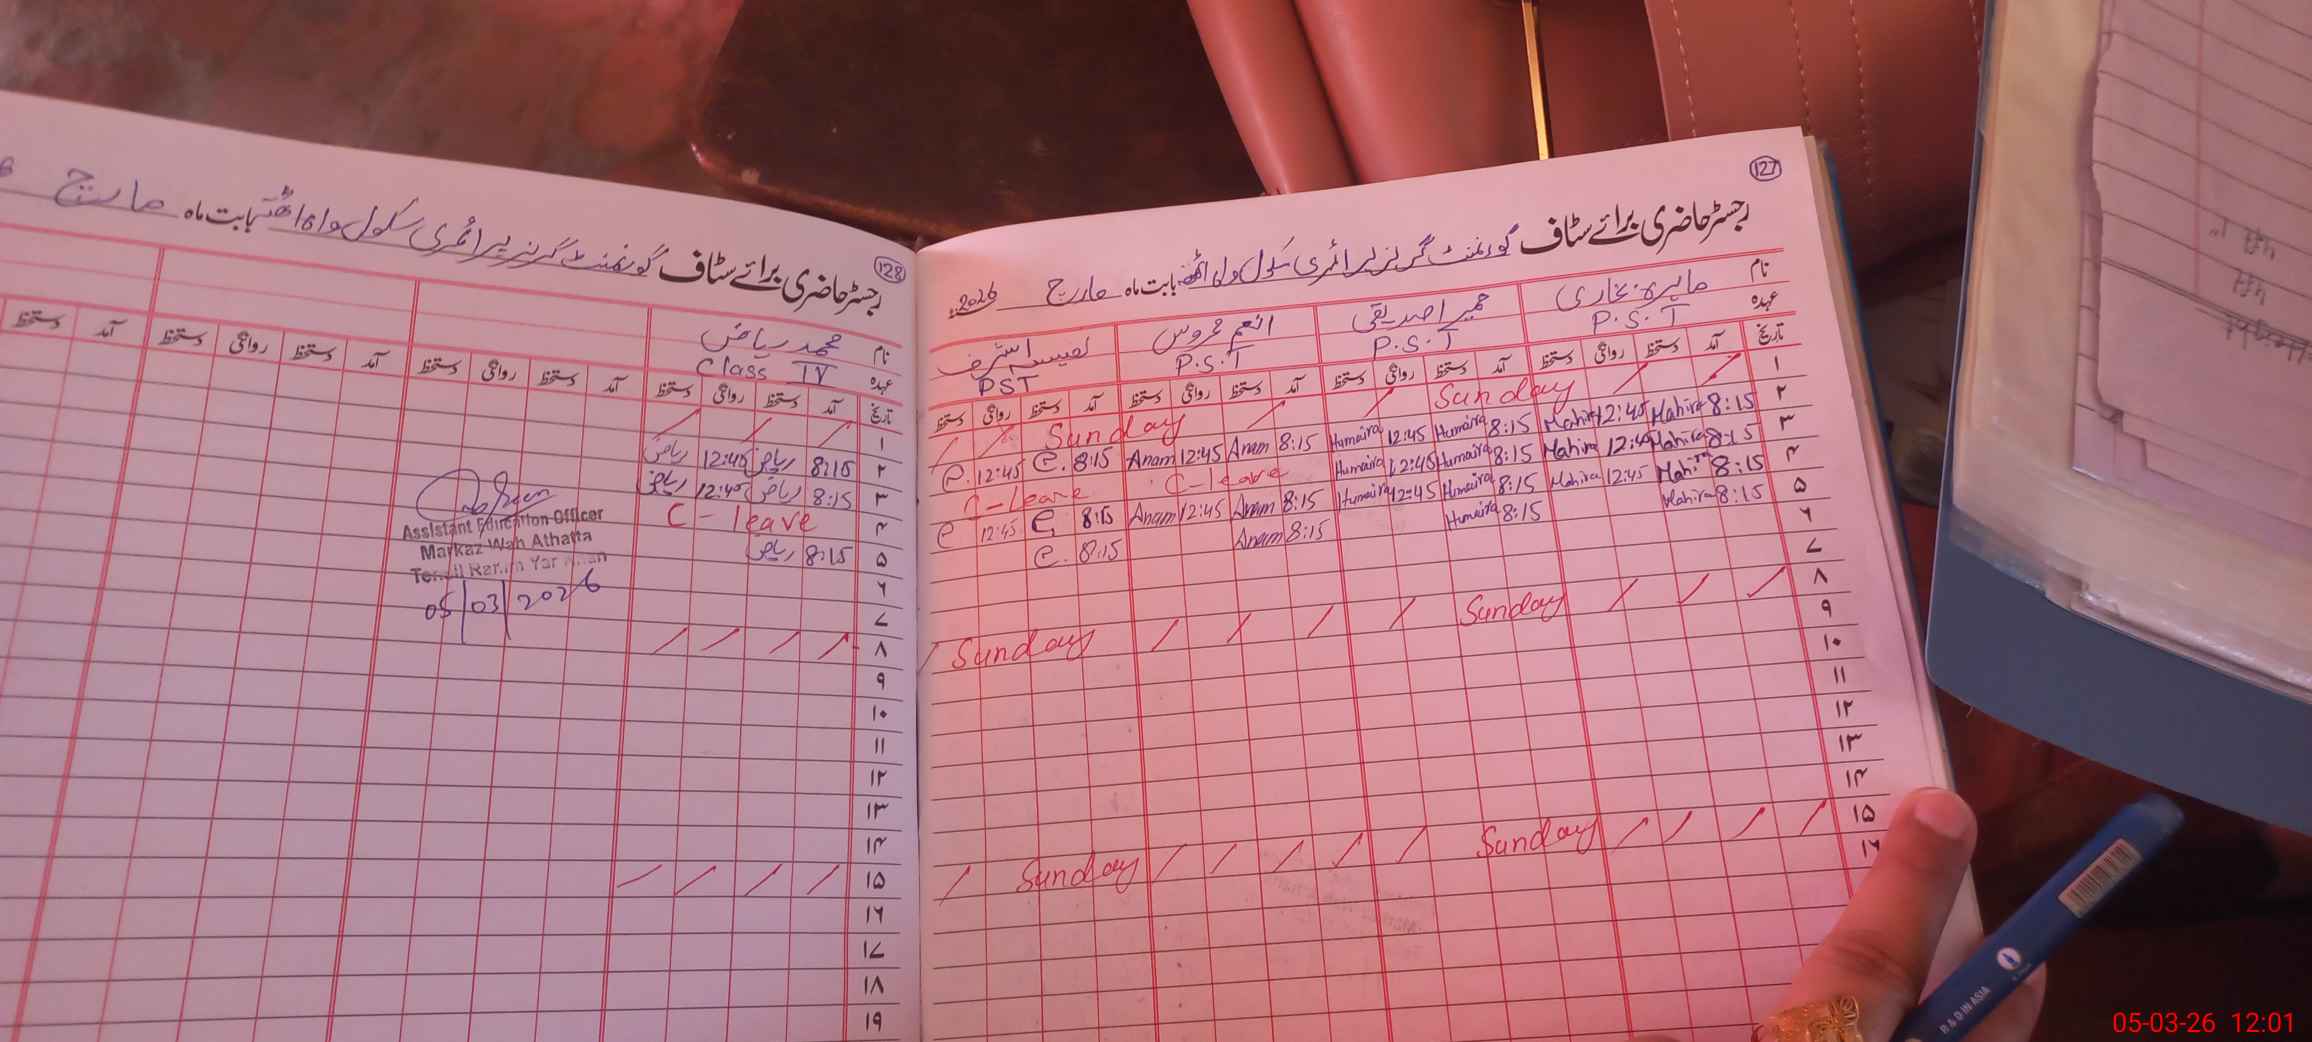 127
رجسٹر حاضری برائے سٹاف گورنمنٹ گرلز پرائمری سکول واہ اٹھتہ بابت ماہ مارچ 2026
نام ماہرہ بخاری حمیرا صدیقی انعم عروس نفیسہ اشرف
عہدہ P.S.T P.S.T P.S.T PST
تاریخ آمد دستخط روانگی دستخط آمد دستخط روانگی دستخط آمد دستخط روانگی دستخط آمد دستخط روانگی دستخط
۱ Sunday Sunday
۲ 8:15 Mahira 12:45 Mahira 8:15 Humaira 12:45 Humaira 8:15 Anam 12:45 Anam 8:15 e. 12:45 e.
۳ 8:15 Mahira 12:45 Mahira 8:15 Humaira 12:45 Humaira C-leave C-leave
۴ 8:15 Mahira 12:45 Mahira 8:15 Humaira 12:45 Humaira 8:15 Anam 12:45 Anam 8:15 e 12:45 e
۵ 8:15 Mahira 8:15 Humaira 8:15 Anam 8:15 e.
۶
۷
۸ Sunday Sunday
۹
۱۰
۱۱
۱۲
۱۳
۱۴
۱۵ Sunday Sunday
۱۶
128
رجسٹر حاضری برائے سٹاف گورنمنٹ گرلز پرائمری سکول واہ اٹھتہ بابت ماہ مارچ
نام محمد ریاض
عہدہ Class IV
تاریخ آمد دستخط روانگی دستخط آمد دستخط روانگی دستخط آمد دستخط روانگی دستخط آمد دستخط
۱
۲ 8:15 ریاض 12:45 ریاض
۳ 8:15 ریاض 12:45 ریاض
۴ C-leave
۵ 8:15 ریاض
۶
۷
۸
۹
۱۰
۱۱
۱۲
۱۳
۱۴
۱۵
۱۶
۱۷
۱۸
۱۹
Assistant Education Officer
Markaz Wah Athatta
Tehsil Rahim Yar Khan
05/03/2026
R & D IN ASIA
05-03-26 12:01